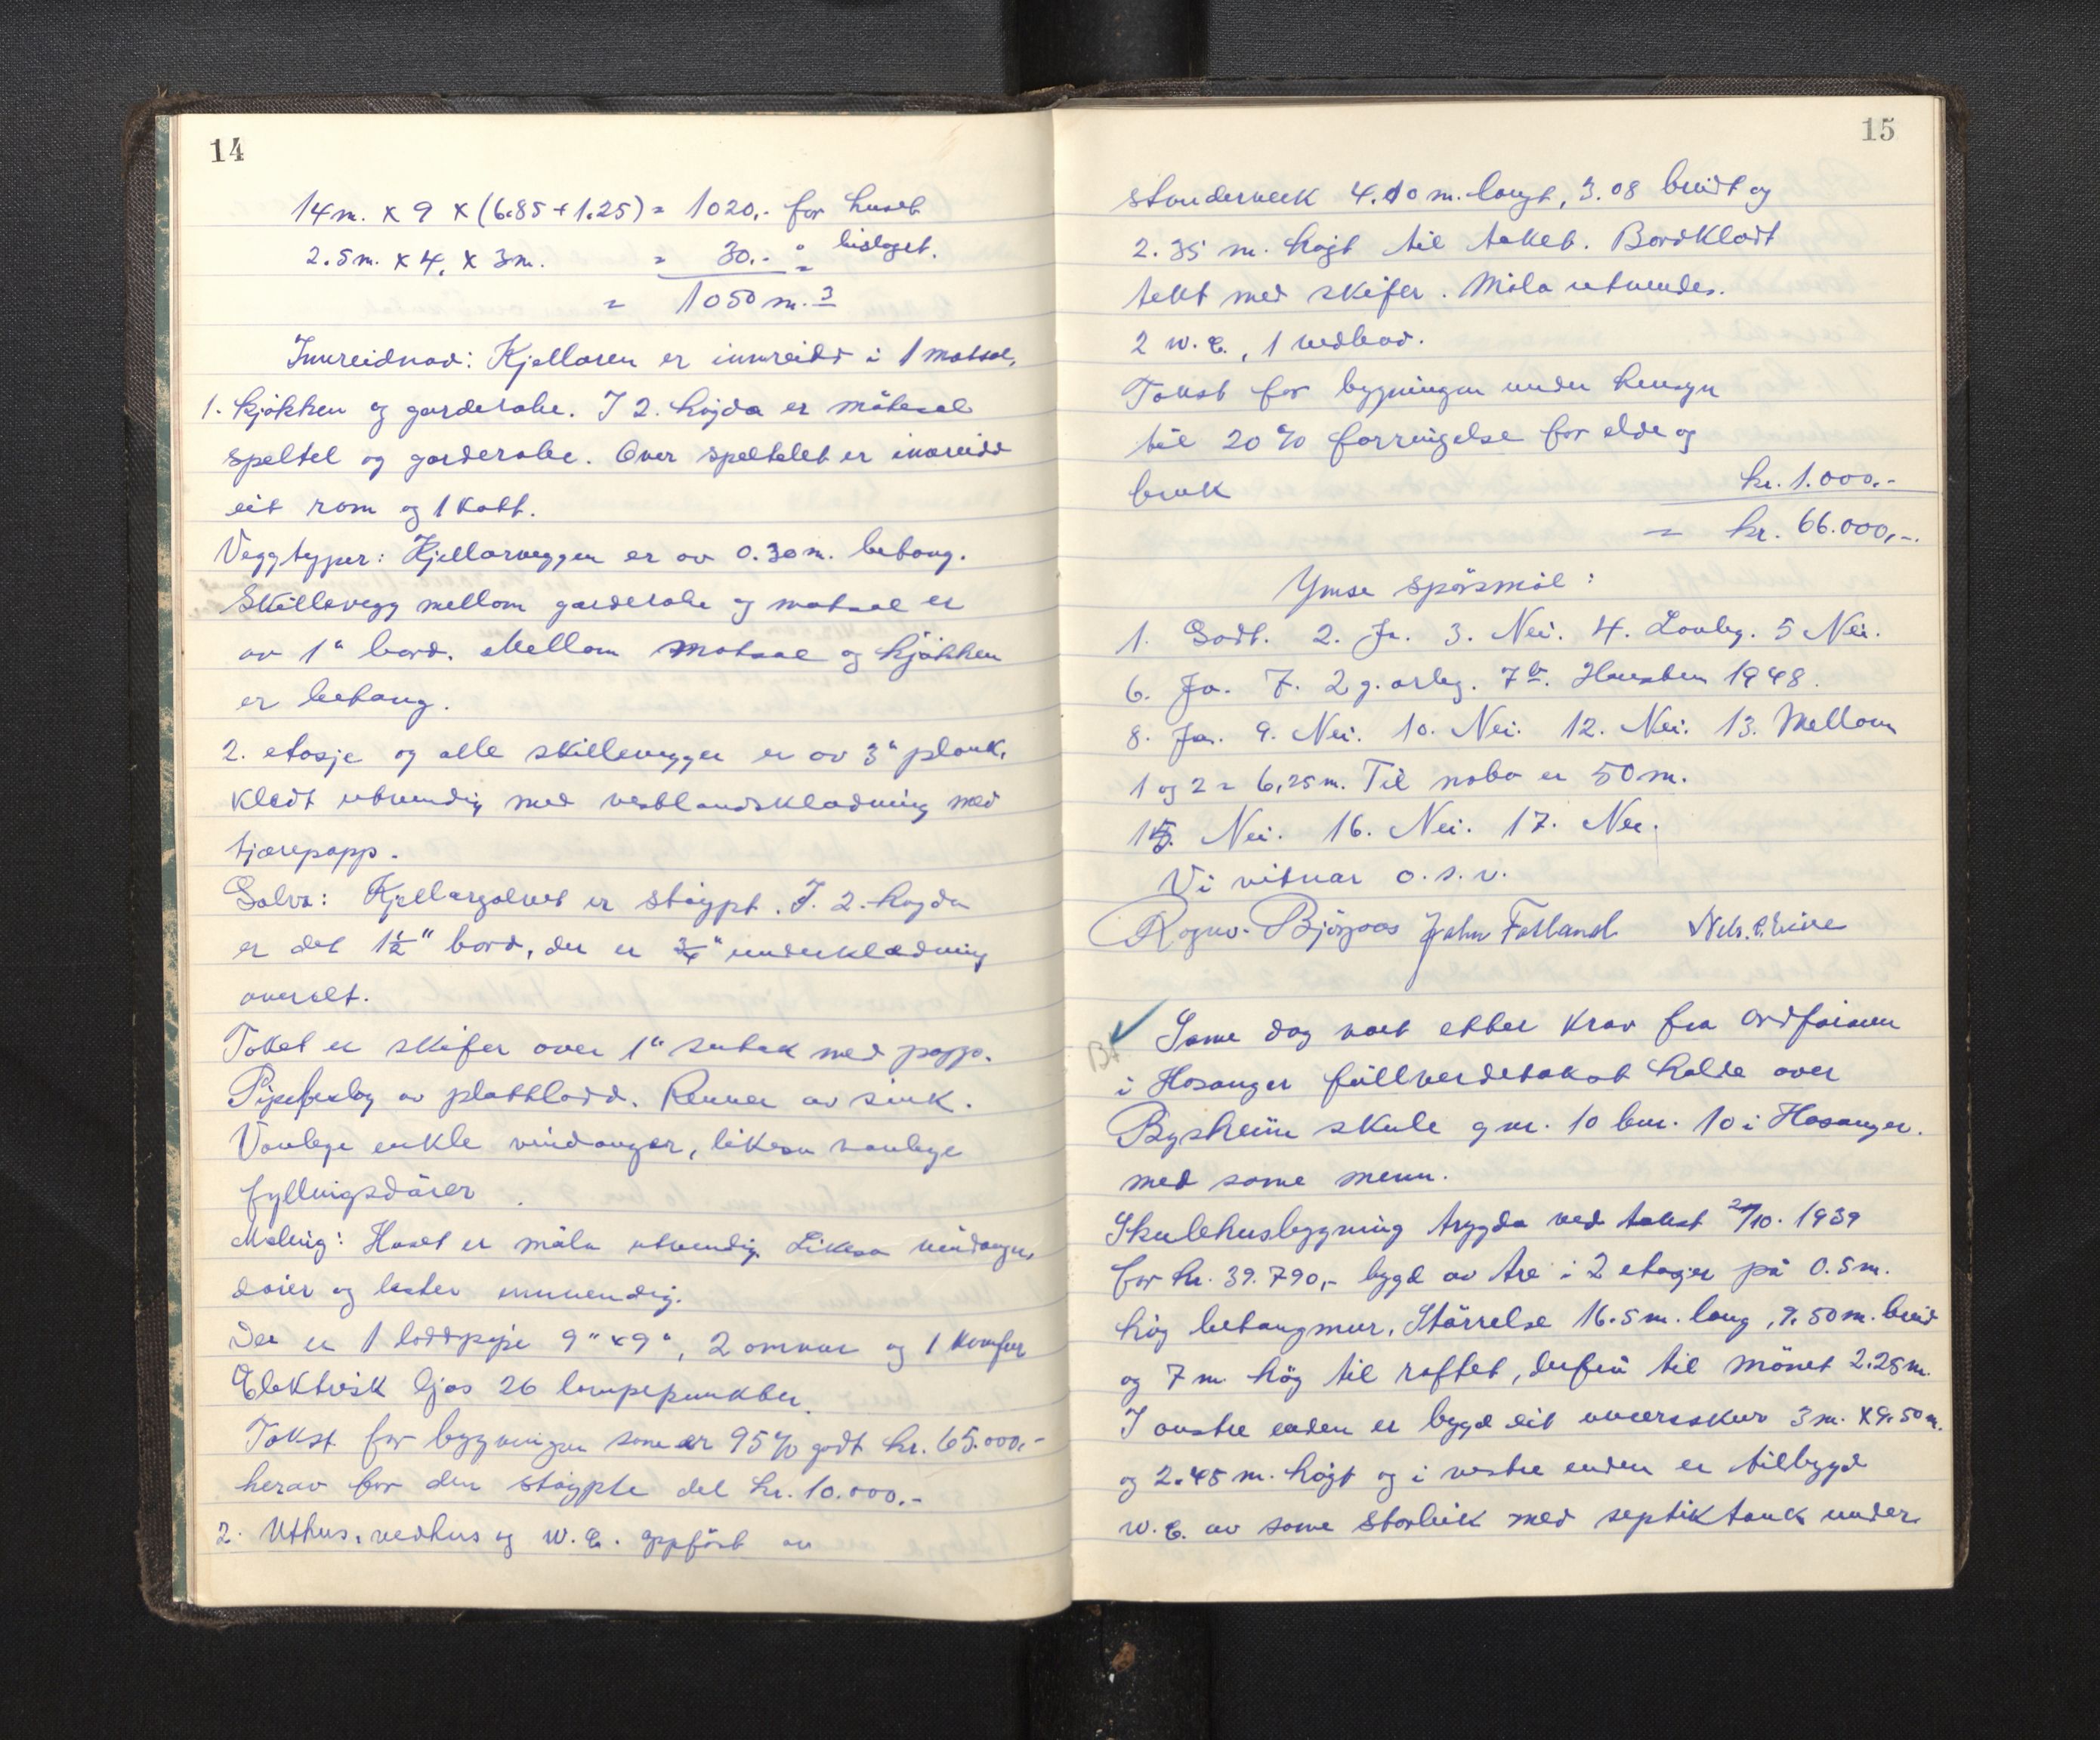 14
14 m. x 9 x (6.85 + 1.25) = 1020,- for huset
2.5 m. x 4, x 3 m. = 30,- " bislaget.
= 1050 m.3
Innreidnad: Kjellaren er innreidd i 1 matsal,
1. kjøkken og garderobe. I 2. høgda er møtesal
speltel og garderobe. Over speltelet er innreidd
eit rom og 1 kott.
Veggtyper: Kjellarveggen er av 0.30 m. betong.
Skillevegg mellom garderobe og matsal er
av 1" bord. Mellom matsal og kjøkken
er betong.
2. etasje og alle skillevegger er av 3" plank,
kledt utvendig med vestlandskledning med
tjærepapp.
Golva: Kjellargolvet er støypt. I. 2. høgda
er det 1½" bord, der er ¾" underkledning
overalt.
Taket er skifer over 1" sutak med papp.
Pipebeslag av plattlodd. Renner av sink.
Vanlege enkle vindauger, likeså vanlege
fyllingsdører.
Maling: Huset er måla utvendig. Likeså vindauger,
dører og lister innvendig.
Der er 1 loddpipe 9" x 9", 2 omnar og 1 komfur
Elektrisk ljos 26 lampepunkter.
Takst for bygningen som er 95% godt kr. 65.000,-
herav for den støypte del kr. 10.000.-
2. Uthus, vedhus og W.C. oppført av
15
stenderverk 4.10 m. langt, 3.08 breidt og
2.35 m. høgt til taket. Bordkledt
tekt med skifer. Måla utvendes.
2 W.C., 1 vedbod.
Takst for bygningen under hensyn
til 20% forringelse for elde og
bruk kr. 1.000.-
= kr. 66.000,-.
Ymse spørsmål:
1. Godt. 2. Ja. 3. Nei. 4. Lovleg. 5 Nei.
6. Ja. 7. 2 g. årleg. 7b. Hausten 1948.
8. Ja. 9. Nei. 10. Nei. 12. Nei. 13. Mellom
1 og 2 = 6,25 m. Til nabo er 50 m.
15. Nei. 16. Nei. 17. Nei.
Vi vitnar o.s.v.
Rognv. Bjørgaas John Fotland Nils
Same dag vart etter krav fra ordføraren
i Hosanger fullverdetakst halde over
Bysheim skule g nr. 10 bnr. 10 i Hosanger.
med same menn.
Skulehusbygning trygda ved takst 2/10. 1939
for kr. 39.790,- bygd av tre i 2 etasjer på 0.5 m.
høg betongmur. Størrelse 16.5 m. lang, 9.50 m. breid
og 7 m. høg til raftet, derfrå til mønet 2.25 m.
I austre enden er bygd eit uveersskur 3 m. x 9.50 m.
og 2.45 m. høgt og i vestre enden er tilbygd
W.C. av same storleik med septiktank under.